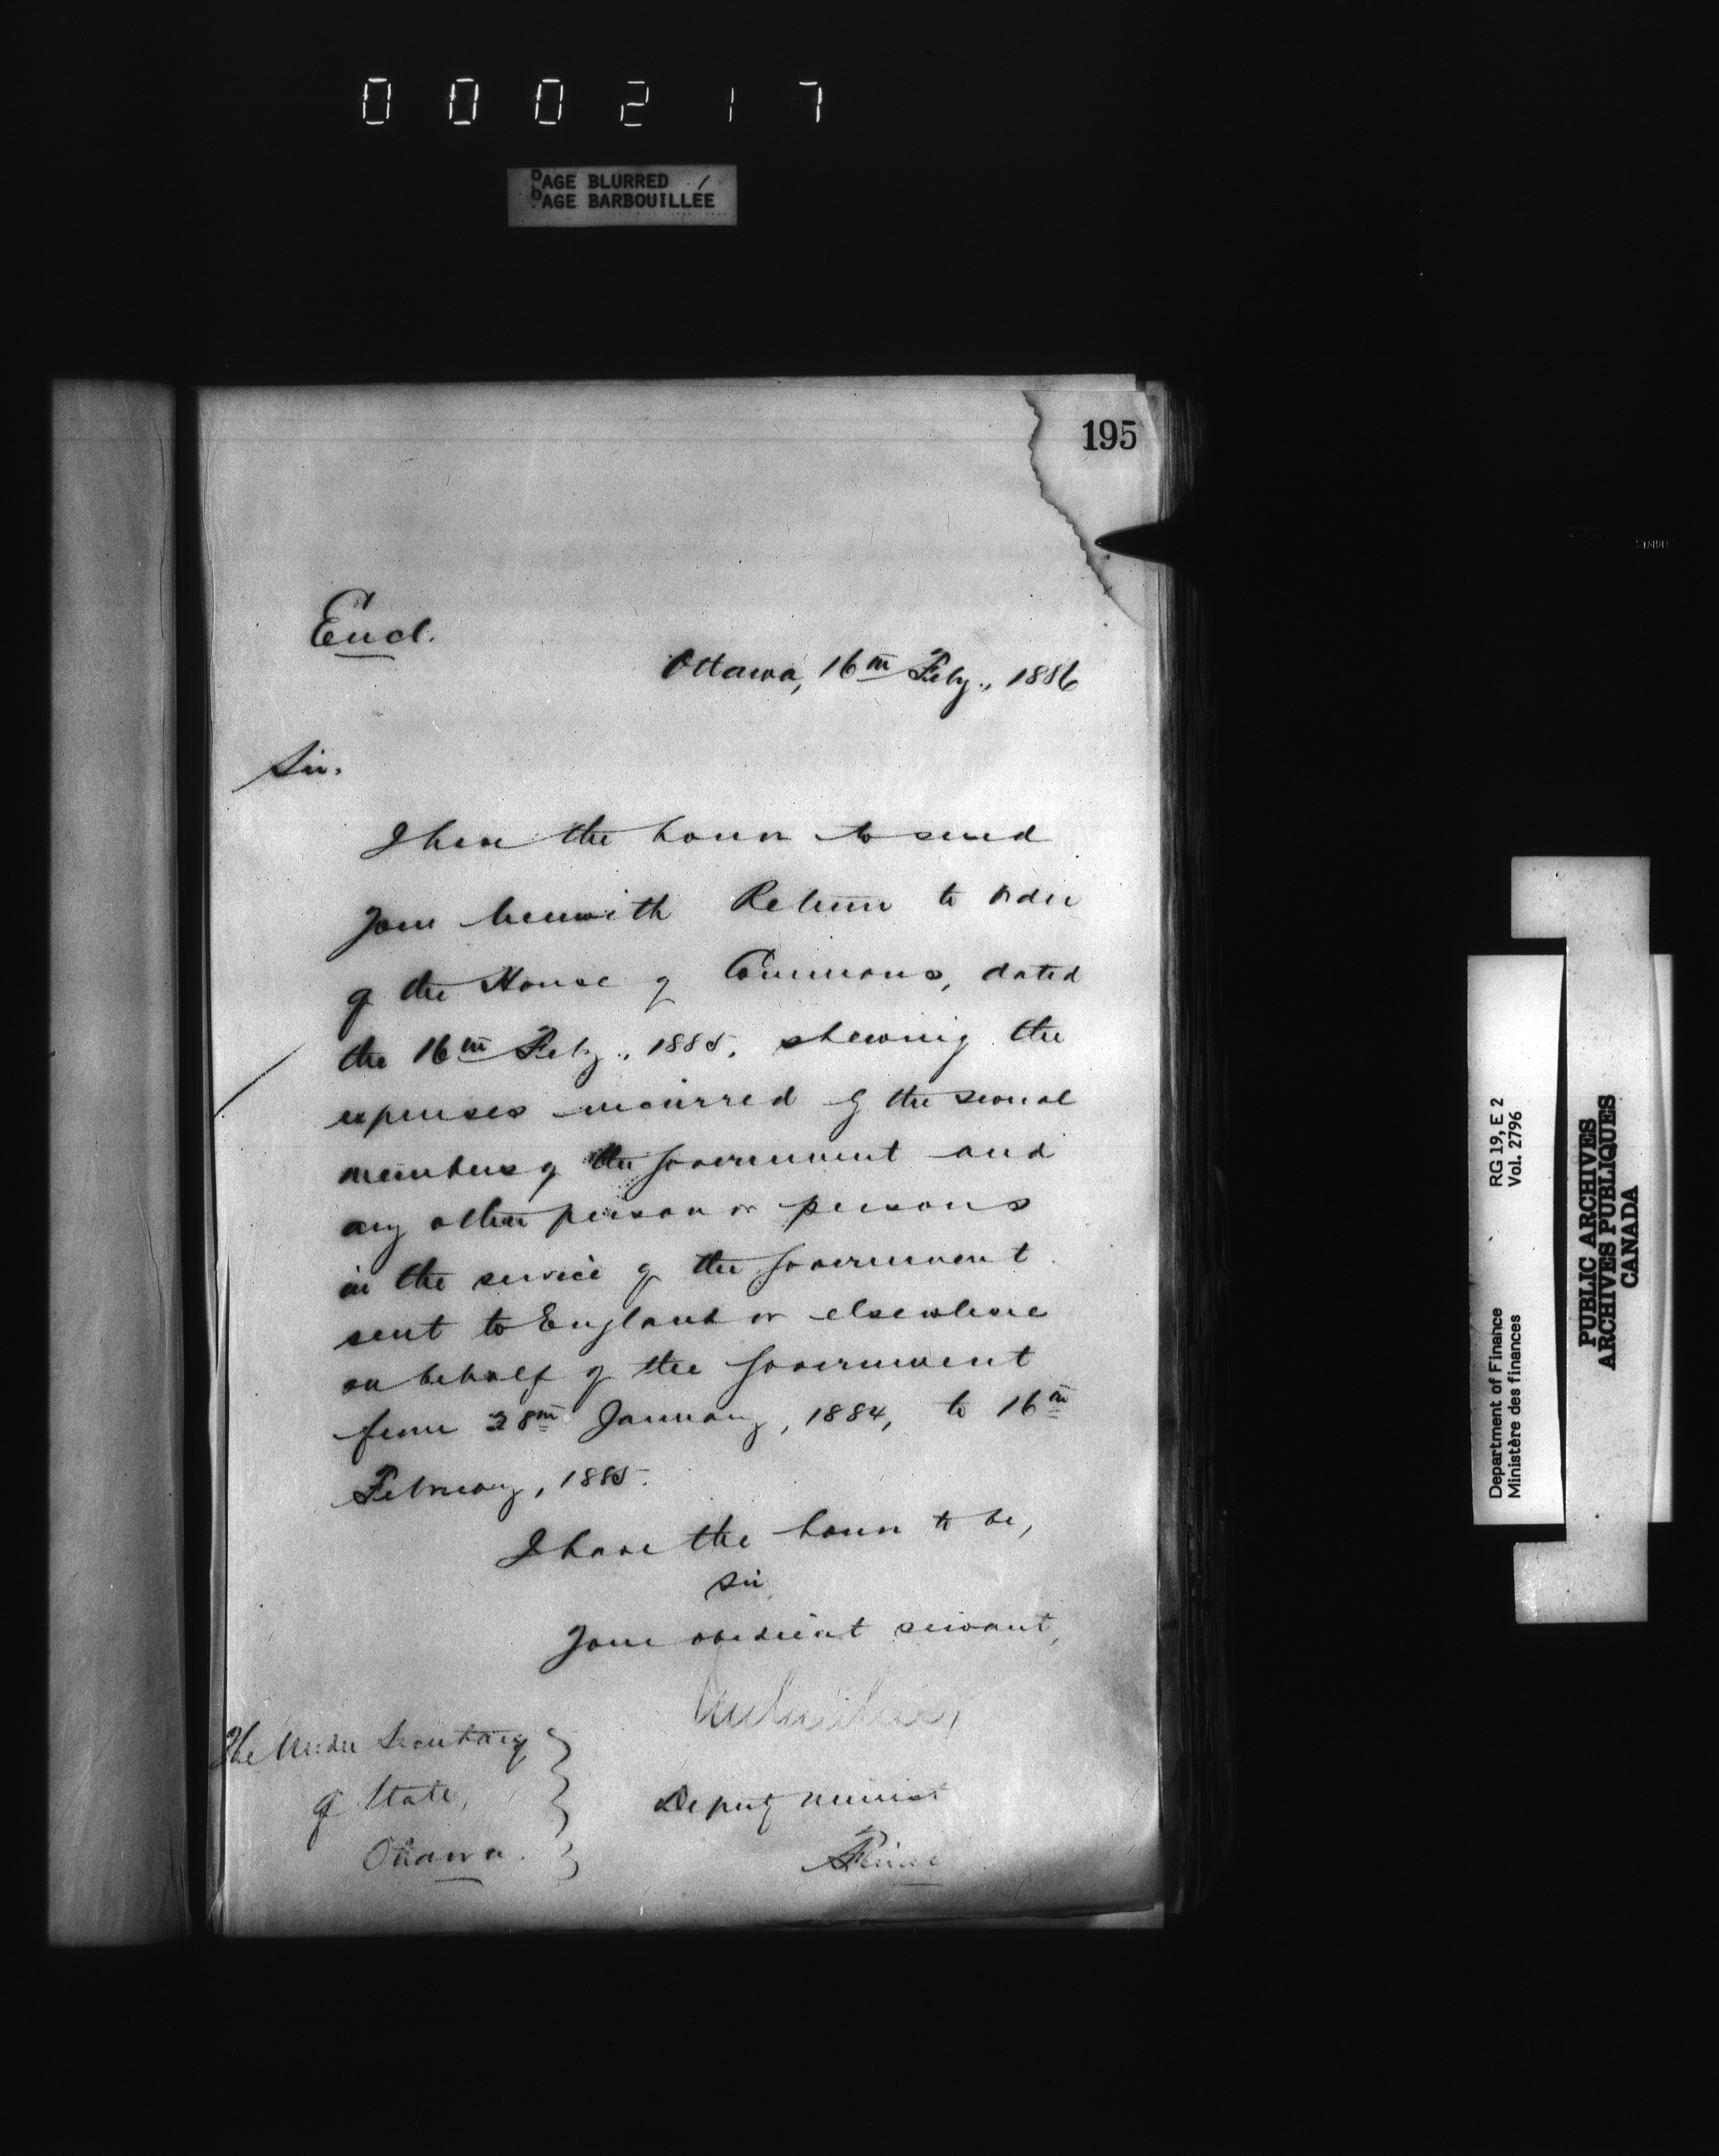 000217
PAGE BLURRED
PAGE BARBOUILLÉE
195
Encl.
Ottawa, 16th Feby., 1886
Sir,
I have the honor to send
you herewith Return to Order
of the House of Commons, dated
the 16th Feby., 1885, shewing the
expenses incurred by the several
members of the Government and
any other person or persons
in the service of the Government
sent to England or elsewhere
on behalf of the Government
from 28th January, 1884, to 16th
February, 1885.
I have the honor to be,
Sir
Your obedient servant,
The Under Secretary
of State,
Ottawa.
Deputy Minist
Finance
Department of Finance RG 19, E 2
Ministère des finances Vol. 2796
PUBLIC ARCHIVES
ARCHIVES PUBLIQUES
CANADA